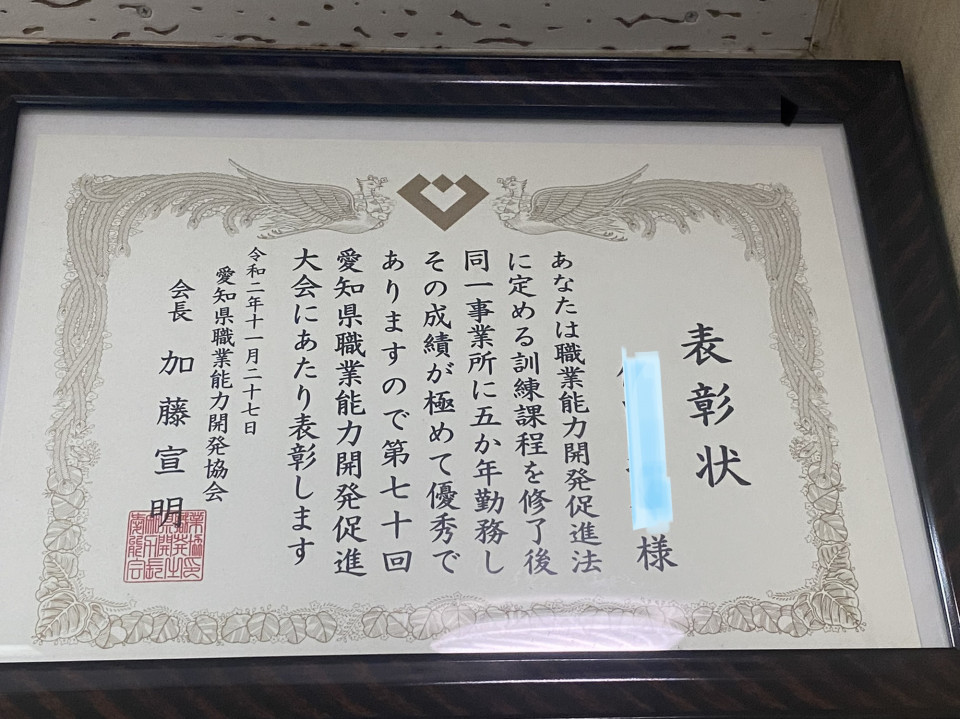 表彰状
様
あなたは職業能力開発促進法
に定める訓練課程を修了後
同一事業所に五か年勤務し
その成績が極めて優秀で
ありますので第七十回
愛知県職業能力開発促進
大会にあたり表彰します
令和二年十一月二十七日
愛知県職業能力開発協会
会長 加藤宣明